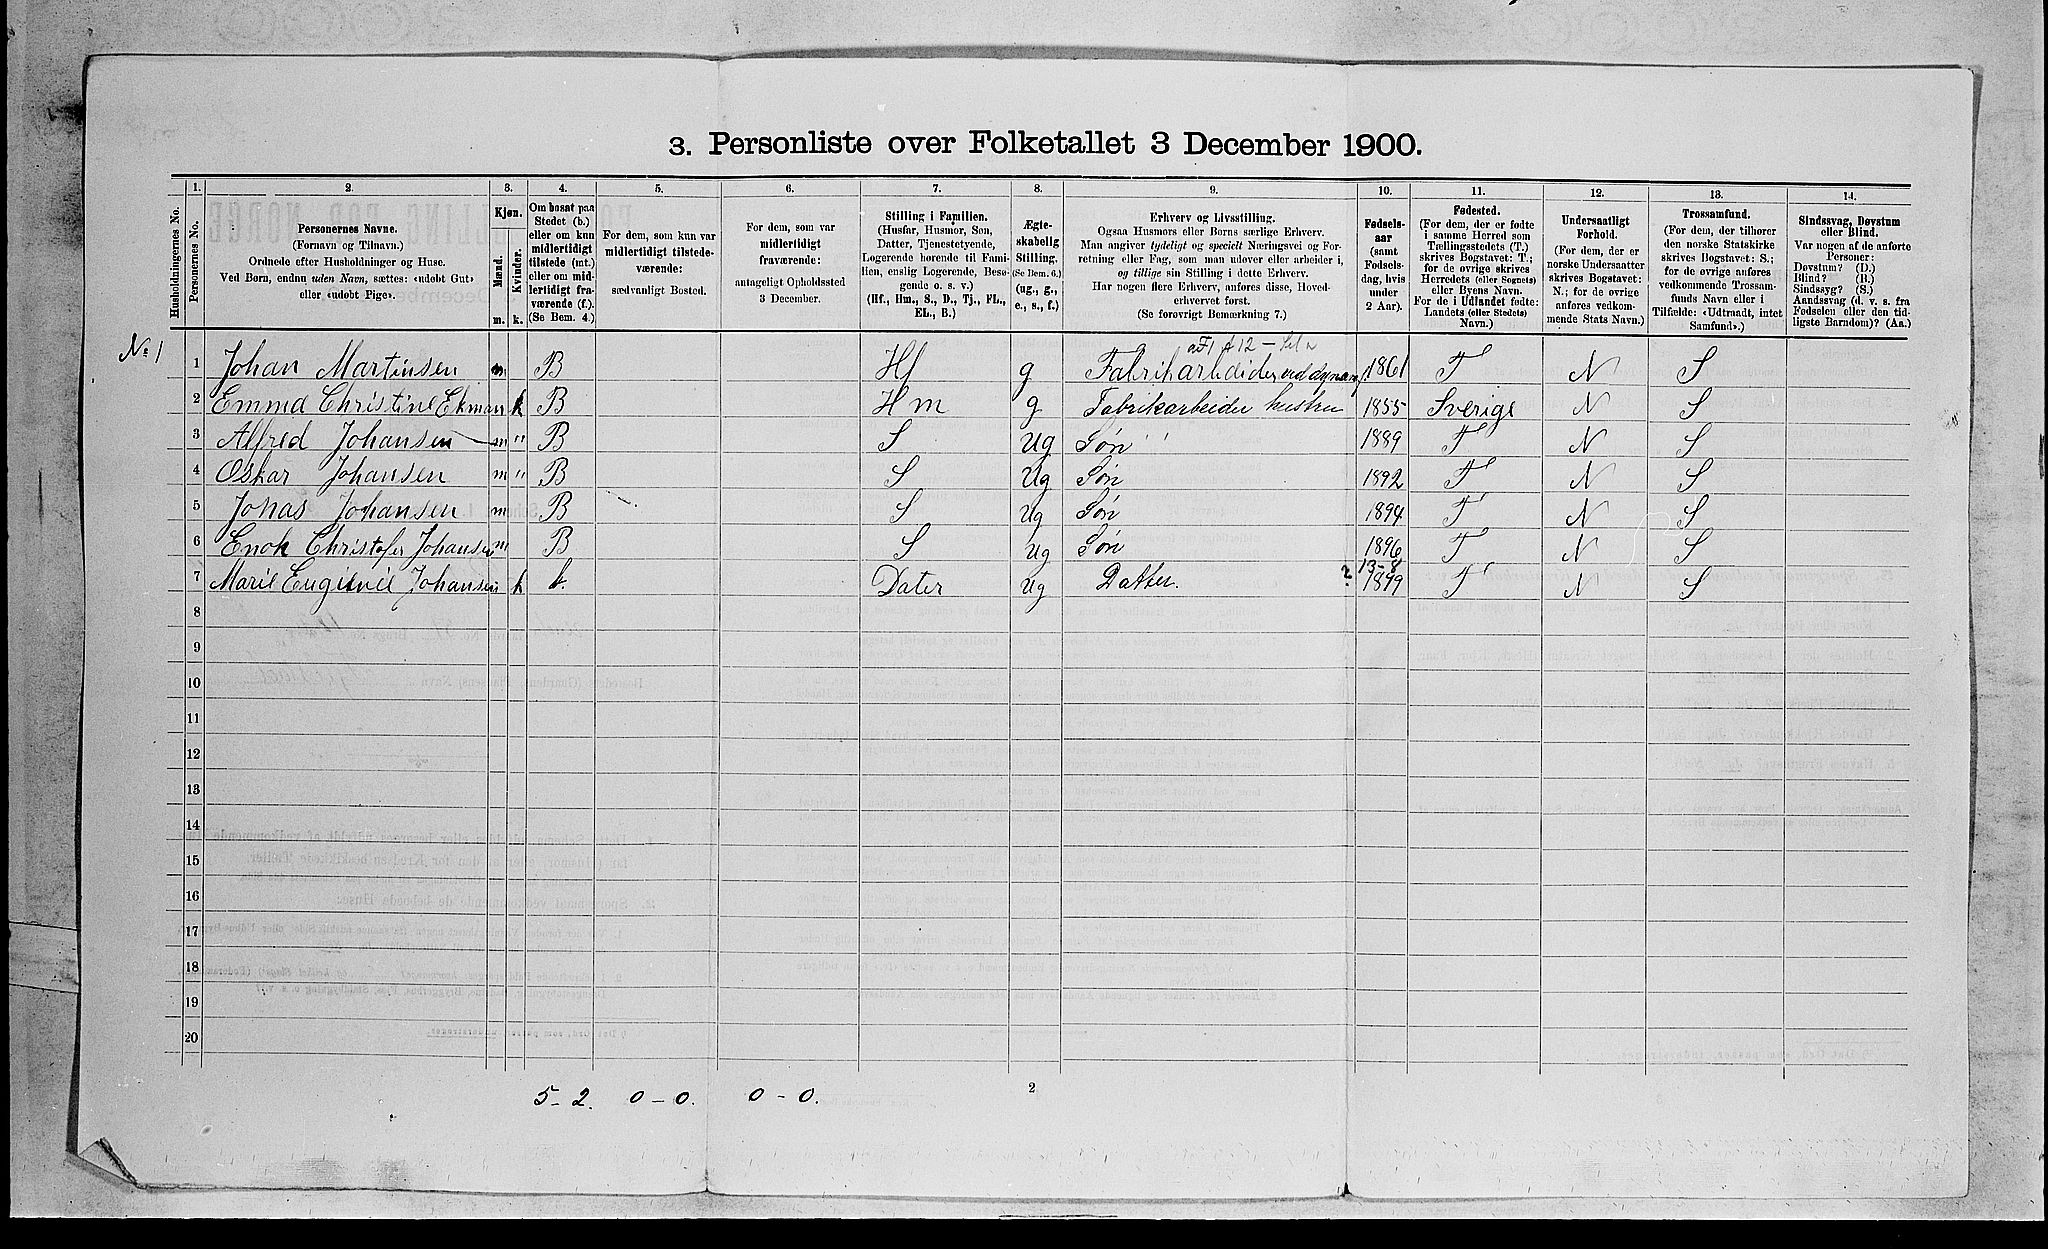 3. Personliste over Folketallet 3 December 1900.
1. 2. 3. 4. 5. 6. 7. 8. 9. 10. 11. 12. 13. 14.
Husholdningernes No.
Personernes No.
Personernes Navne.
(Fornavn og Tilnavn.)
Ordnede efter Husholdninger og Huse.
Ved Børn, endnu uden Navn, sættes: «udøbt Gut»
eller «udøbt Pige».
Kjøn.
Mænd.
Kvinder.
m. k.
Om bosat paa
Stedet (b.)
eller om kun
midlertidigt
tilstede (mt.)
eller om mid-
lertidigt fra-
værende (f.).
(Se Bem. 4.)
For dem, som kun var
midlertidigt tilstede-
værende:
sædvanligt Bosted.
For dem, som var
midlertidigt
fraværende:
antageligt Opholdssted
3 December.
Stilling i Familien.
(Husfar, Husmor, Søn,
Datter, Tjenestetyende,
Logerende hørende til Fami-
lien, enslig Logerende, Besø-
gende o. s. v.)
(Hf., Hm., S., D., Tj., FL.,
EL., B.)
Ægte-
skabelig
Stilling.
(Se Bem. 6.)
(ug., g.,
e., s., f.)
Erhverv og Livsstilling.
Ogsaa Husmors eller Børns særlige Erhverv.
Man angiver tydeligt og specielt Næringsvei og For-
retning eller Fag, som man udøver eller arbeider i,
og tillige sin Stilling i dette Erhverv.
Har nogen flere Erhverv, anføres disse, Hoved-
erhvervet først.
(Se forøvrigt Bemærkning 7.)
Fødsels-
aar
(samt
Fødsels-
dag, hvis
under
2 Aar).
Fødested.
(For dem, der er fødte
i samme Herred som
Tællingsstedets (T.)
skrives Bogstavet: T.;
for de øvrige skrives
Herredets (eller Sognets)
eller Byens Navn.
For de i Udlandet fødte:
Landets (eller Stedets)
Navn.)
Undersaatligt
Forhold.
(For dem, der er
norske Undersaatter
skrives Bogstavet:
N.; for de øvrige
anføres vedkom-
mende Stats Navn.)
Trossamfund.
(For dem, der tilhører
den norske Statskirke
skrives Bogstavet: S.;
for de øvrige anføres
vedkommende Trossam-
funds Navn eller i
Tilfælde: «Udtraadt, intet
Samfund».)
Sindssvag, Døvstum
eller Blind.
Var nogen af de anførte
Personer:
Døvstum? (D.)
Blind? (B.)
Sindssyg? (S.)
Aandssvag (d. v. s. fra
Fødselen eller den tid-
ligste Barndom)? (Aa.)
No 1
1 Johan Martinsen m B Hf g Fabrikarbeider ved dynam. 1861 T N S
2 Emma Christine Ekman k B Hm g Fabrikarbeider hustru 1855 Sverige N S
3 Alfred Johansen m " B S Ug Søn " 1889 T N S
4 Oskar Johansen m " B S Ug Søn 1892 T N S
5 Jonas Johansen m B S Ug Søn 1894 T N S
6 Enok Christofer Johansen m B S Ug Søn 1896 T N S
7 Marie Euginie Johansen k b. Dater Ug Datter. ? 13-8 1899 T N S
8
9
10
11
12
13
14
15
16
17
18
19
20
5-2. 0-0. 0-0.
2